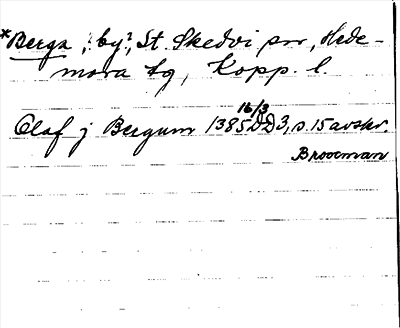 *Berga, by?, St. Skedvi snr, Hede-
mora tg, Kopp. l.
16/3
Olaf j Bergum 1385 DD3, s. 15 avskr.
Brooman